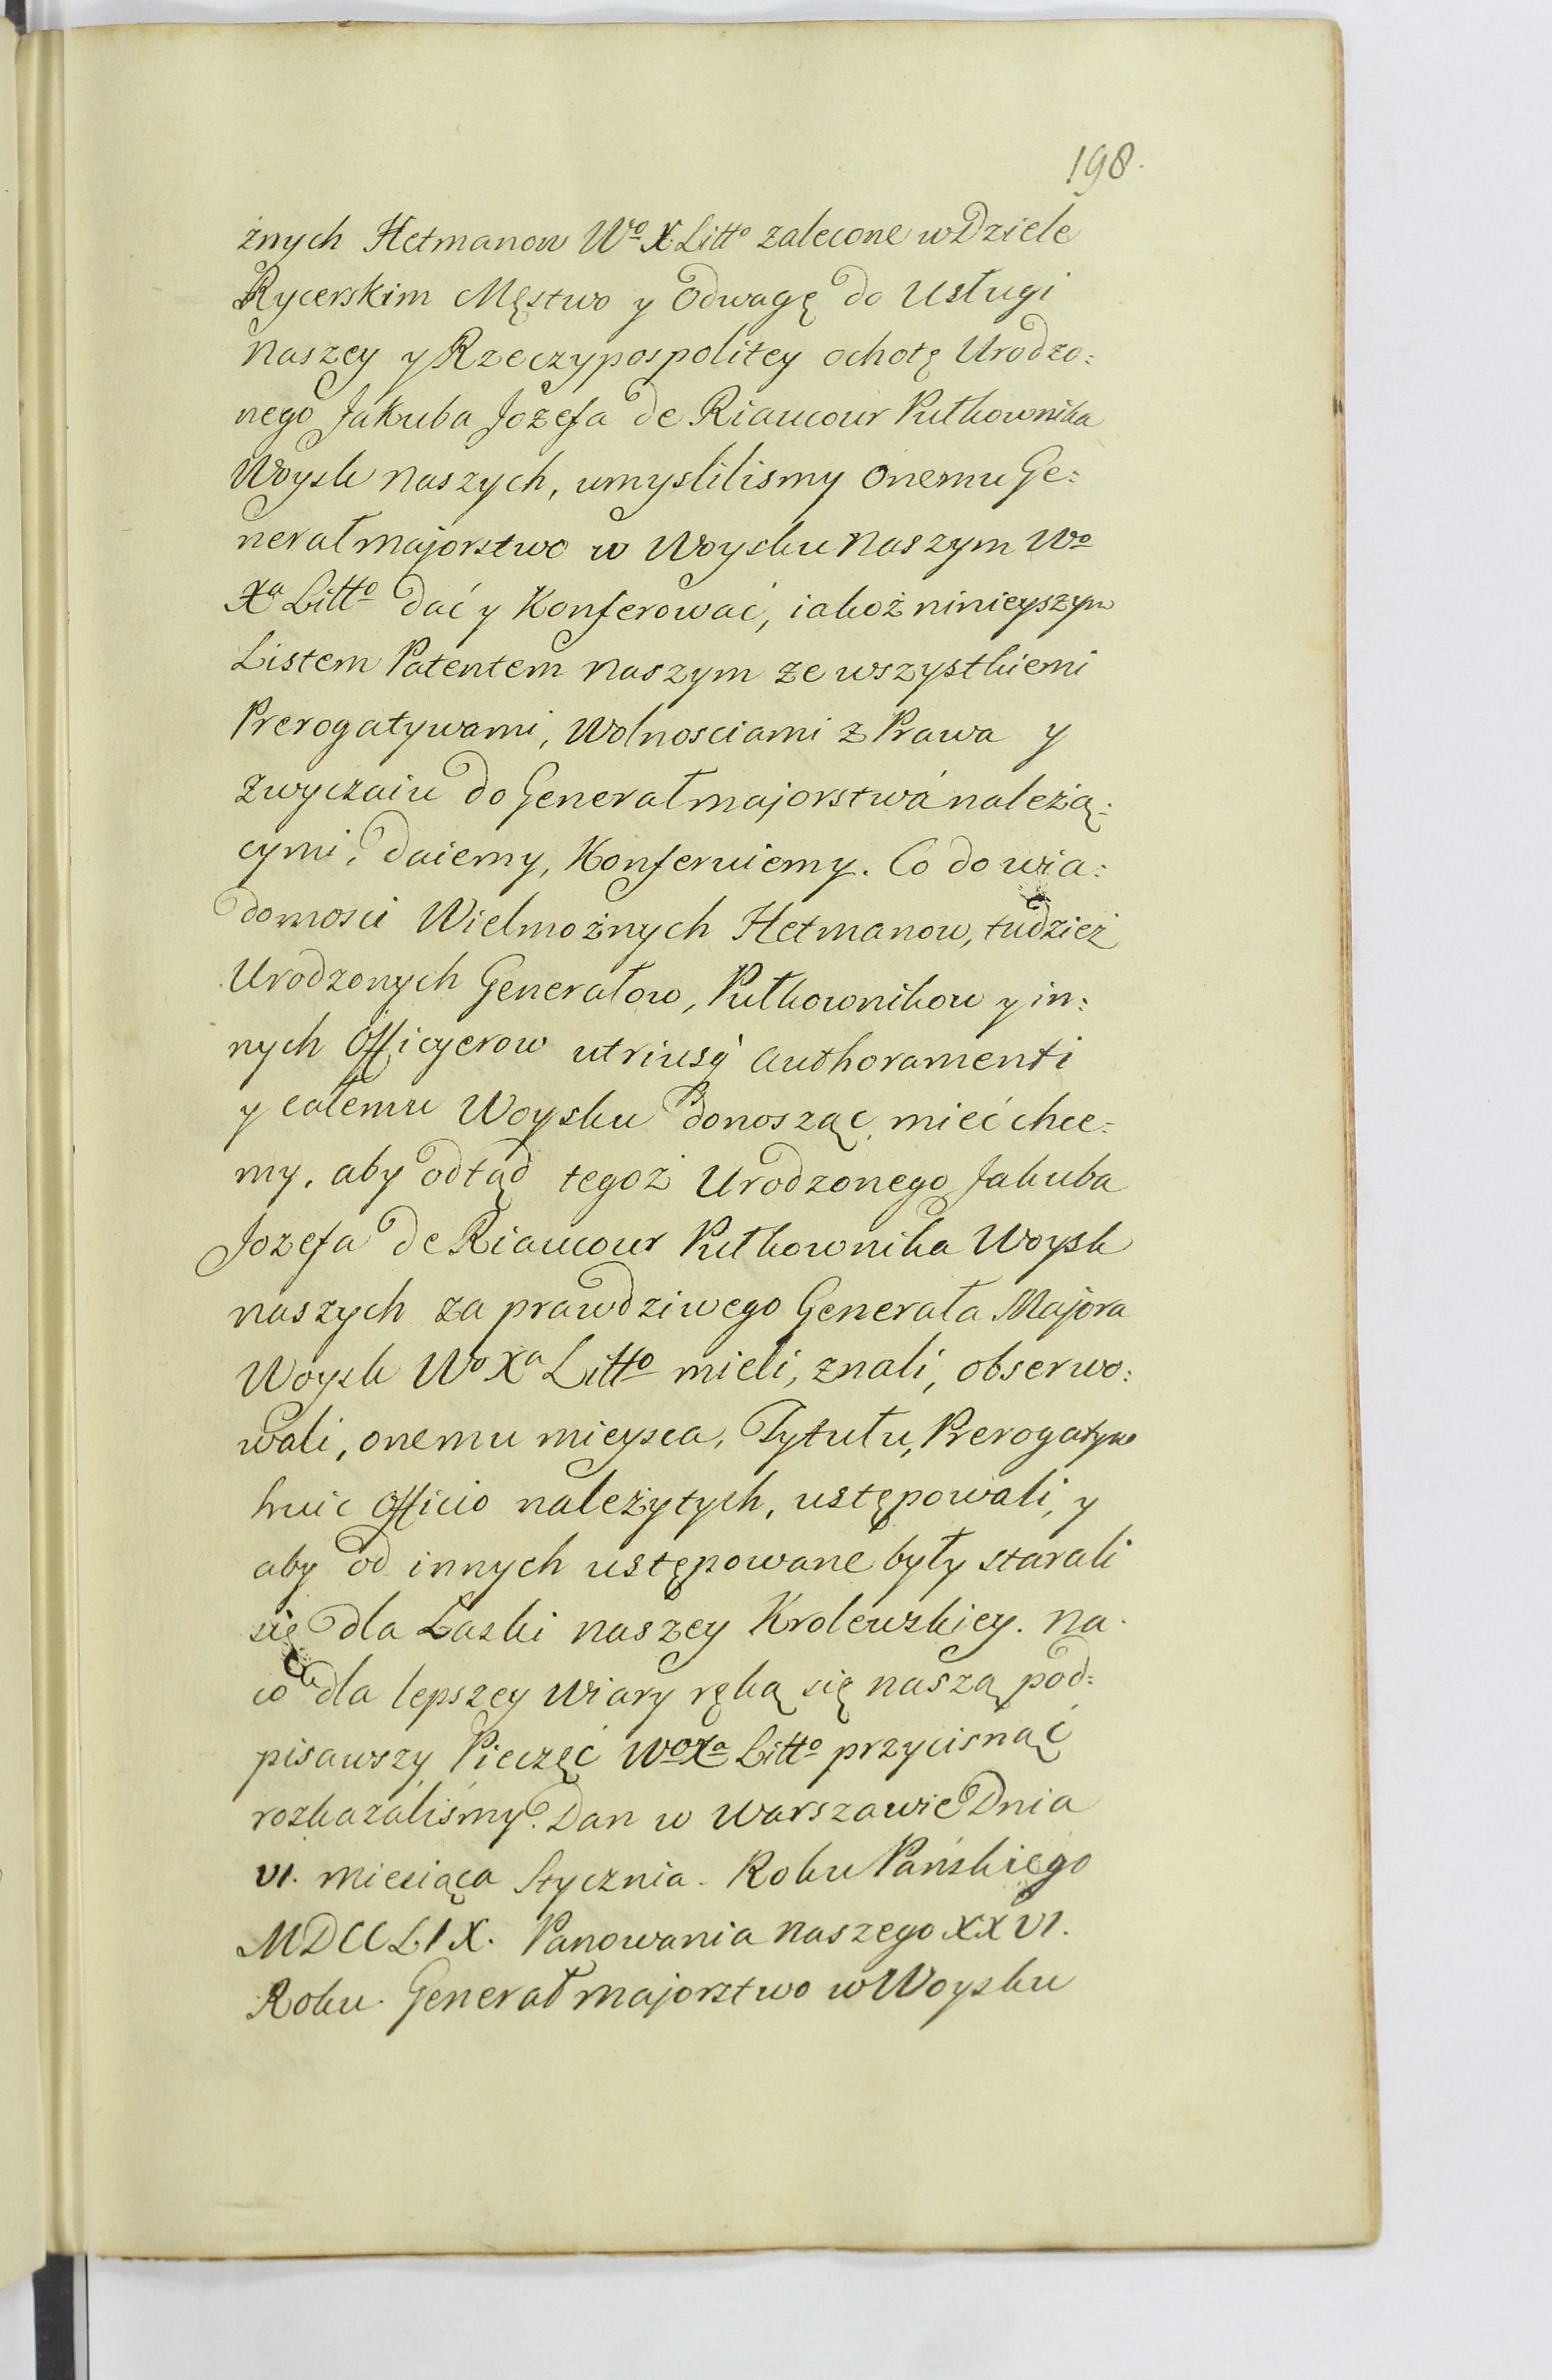 198.
żnych Hetmanow Wo X Litto zalecone w Dziele
Rycerskim Męstwo y Odwagę do Usługi
Naszey y Rzeczypospolitey ochotę Urodzo:
nego Jakuba Jozefa de Riaucour Pułkownika
Woysk Naszych, umyslilismy onemu Ge:
nerałmajorstwo w Woysku Naszym Wo
Xa Litto dać y Konferować, iakoż ninieyszym
Listem Patentem Naszym ze wszystkiemi
Prerogatywami, Wolnosciami z Prawa y
Zwyczaiu do Generałmajorstwá należą:
cymi, daiemy, Konferuiemy. Co do wia:
domosci Wielmożnych Hetmanow, tudzież
Urodzonych Generałow, Pułkownikow y in:
nych Officyerow utriusq' Authoramenti
y całemu Woysku donosząc, mieć chce:
my, aby odtąd tegoż Urodzonego Jakuba
Jozefa de Riaucour Pułkownika Woysk
naszych za prawdziwego Generała Majora
Woysk Wo Xa Litto mieli, znali, obserwo:
wali, onemu mieysca, Tytułu, Prerogatyw
huic Officio należytych, ustępowali, y
aby od innych ustępowane były starali
się dla Łaski naszey Krolewskiey. Na
co dla lepszey Wiary ręką się naszą pod:
pisawszy, Pieczęć Wo Xa Litto przycisnąć
rozkazáliśmy. Dan w Warszawie Dnia
VI. Miesiąca Stycznia. Roku Pańskiego
MDCCLIX. Panowania Naszego XXVI.
Roku. Generał majorstwo w Woysku